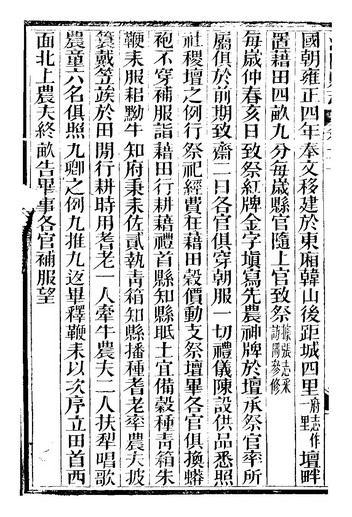 國朝雍正四年奉文移建於東廂韓山後距城四里府志作一里壇畔
置藉田四畝九分每歲縣官隨上官致祭據張志采訪冊參修
每歲仲春亥日致祭紅牌金字塡寫先農神牌於壇承祭官率所
屬俱於前期致齋二日各官俱穿朝服一切禮儀陳設供品悉照
社稷壇之例行祭祀經費在藉田穀價動支祭壇畢各官俱換蟒
袍不穿補服詣藉田行耕藉禮首縣知縣眂土宜備穀種靑箱朱
鞭耒服耜黝牛知府秉耒佐貳執靑箱知縣播種耆老率農夫披
簑戴笠竢於田間行耕時用耆老一人牽牛農夫二人扶犂唱歌
農童六名俱照九卿之例九推九返畢釋鞭耒以次序立田首西
面北上農夫終畝告畢事各官補服望